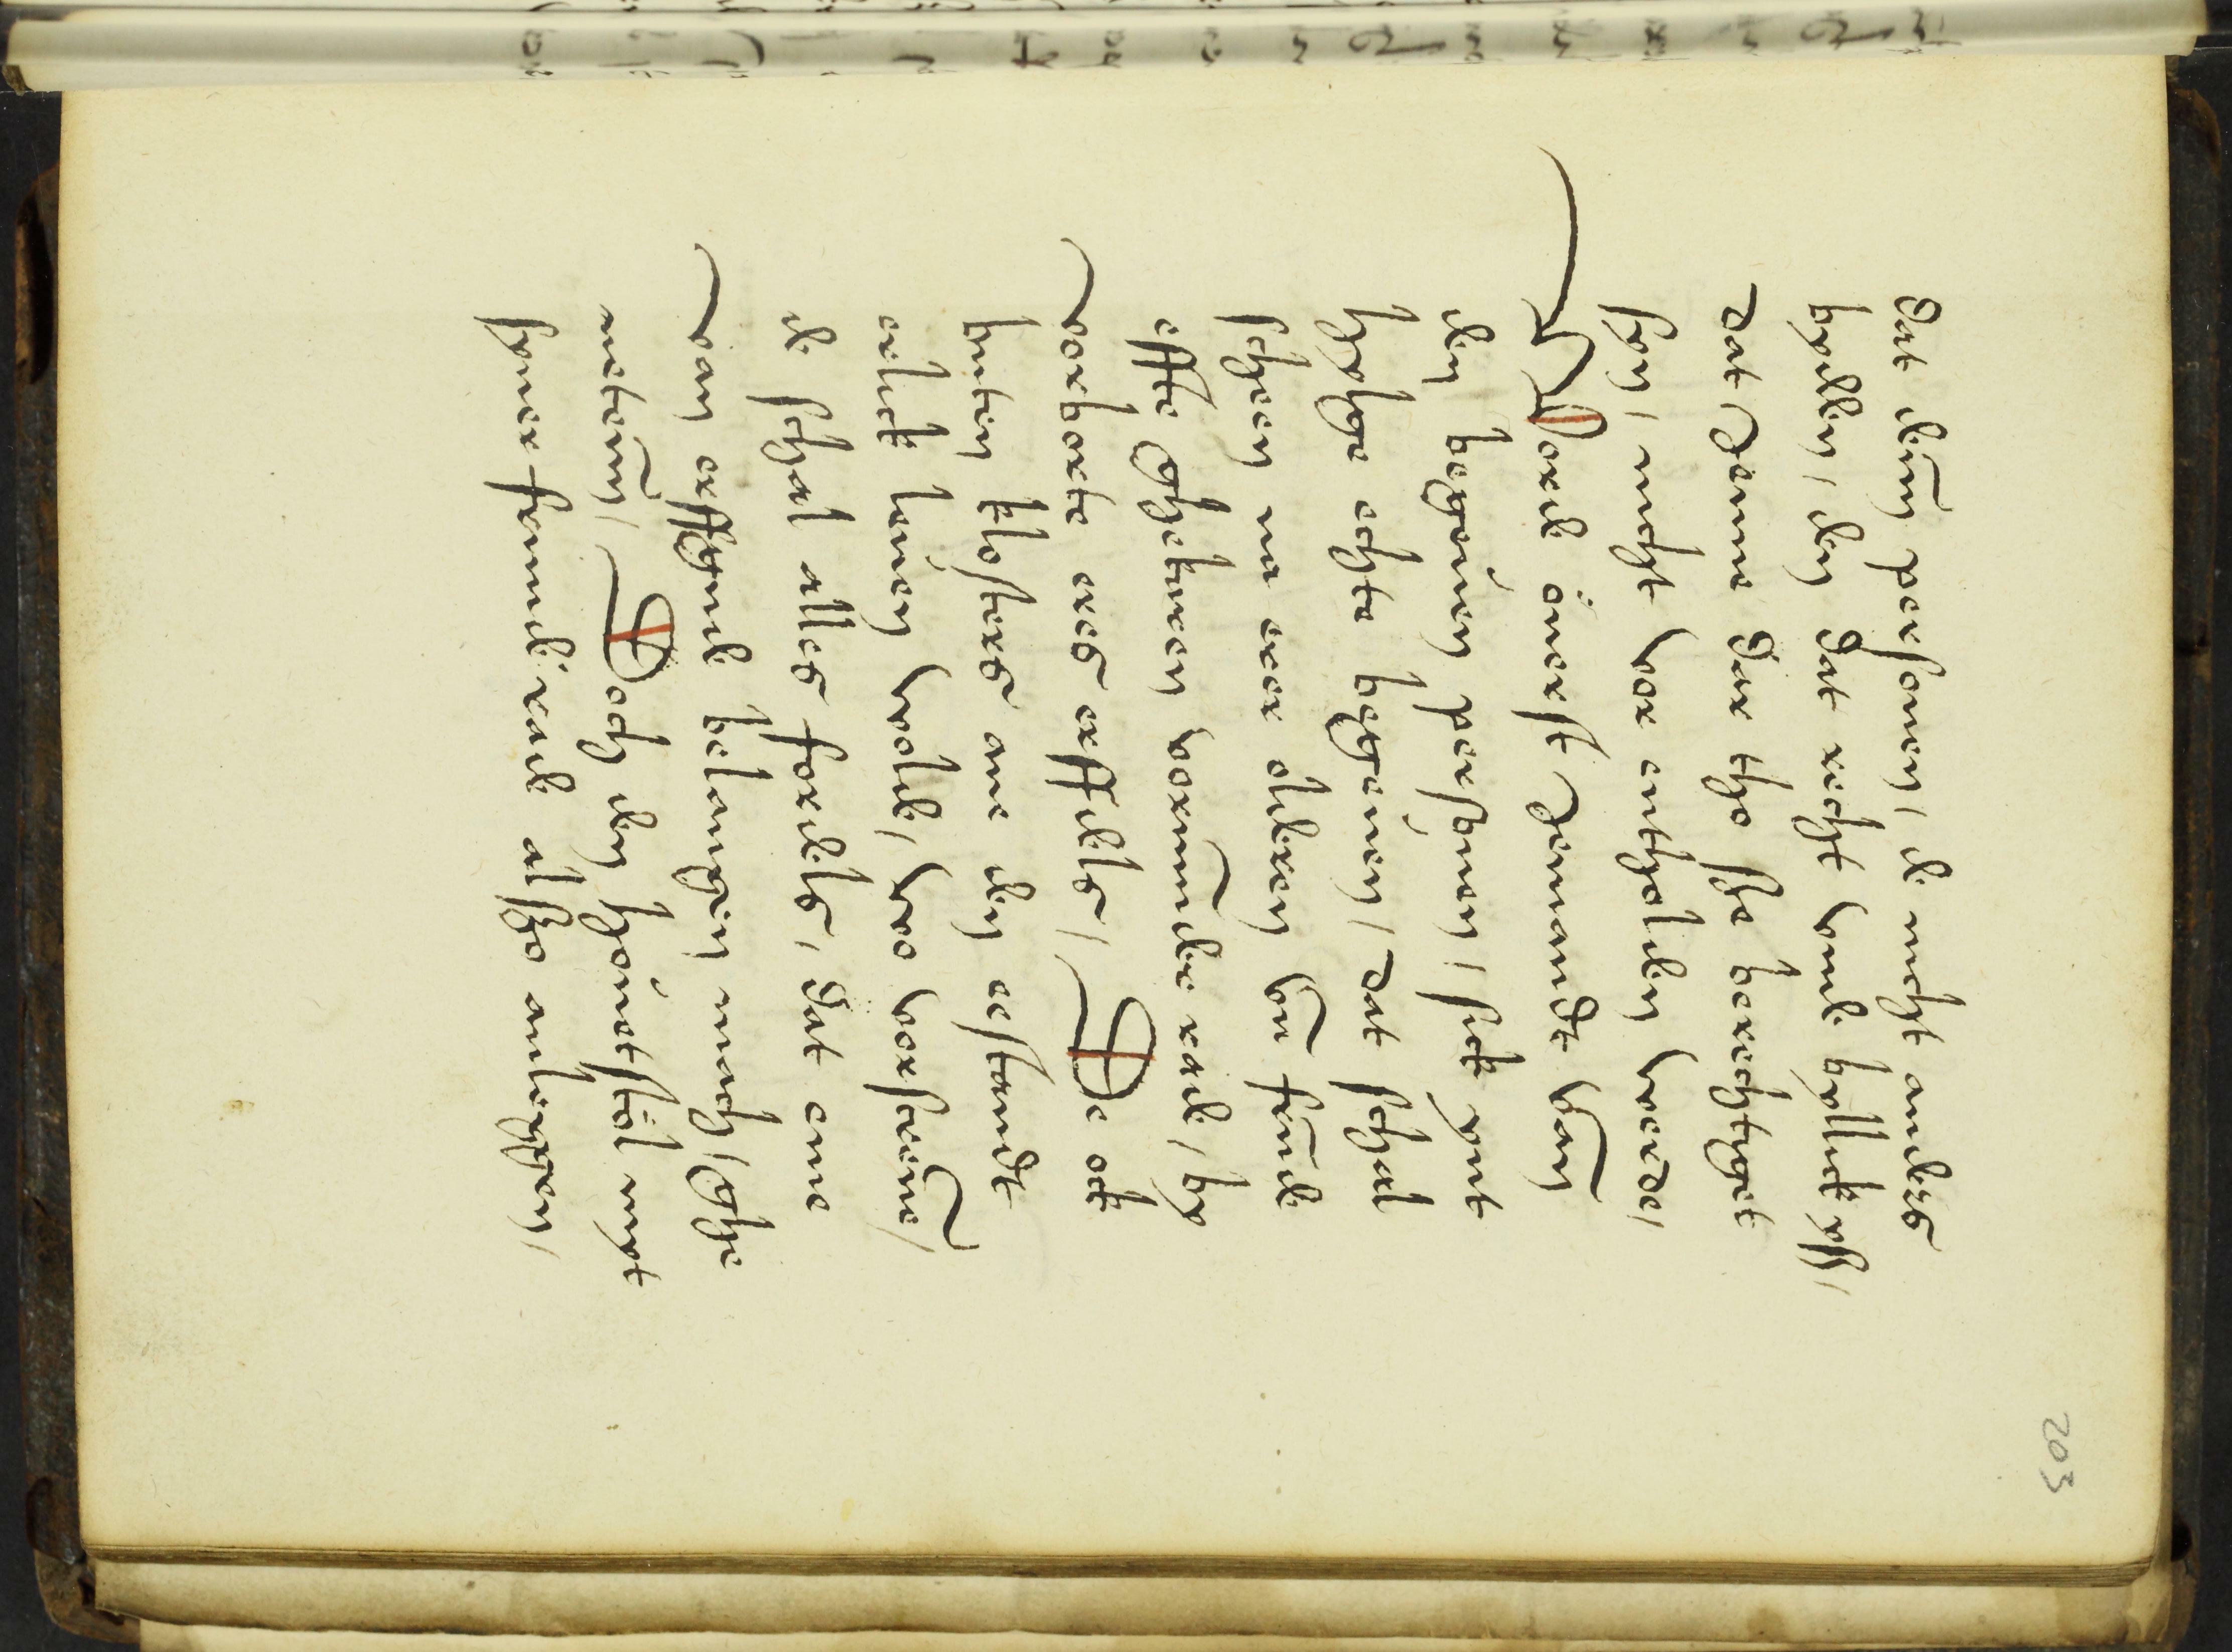 203
dat den personen, de nicht anders
hyllen, den dat recht vnde hyllick ys,
dat Jenne dar tho se berechtyget
syn, nicht vor entholden werde,
Worde öuerst Jemandt van
den begeuen personen, sick ynt
hylyge echte begeuen, dat schal
scheen na erer olderen vn fründe
effte gekaren vormunder rade, by
vorborte eres erffdels, De ock
buten klosters ane den ehestandt
erlick leuen wolde, wo vorscreuen,
de schal alles fordels, dat eme
van erfftguds belangen mach, ghe
neten, Doch den houetstol myt
syner frunde rade also anleggen,